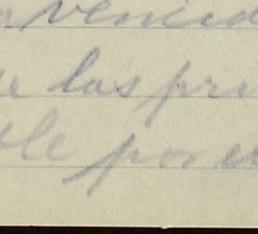 venid
e las pri
ble por e